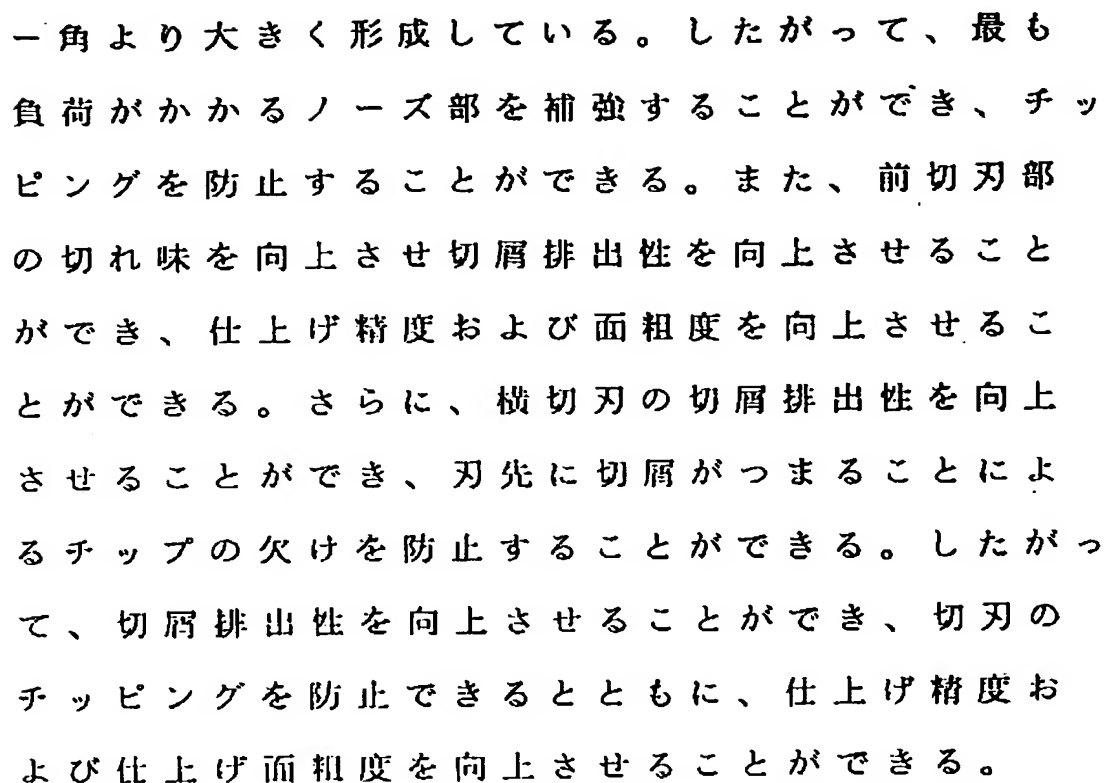 ー角より大きく形成している。したがって、最も
負荷がかかるノーズ部を補強することができ、チッ
ピングを防止することができる。また、前切刃部
の切れ味を向上させ切屑排出性を向上させること
ができ、仕上げ精度および面粗度を向上させるこ
とができる。さらに、横切刃の切屑排出性を向上
させることができ、刃先に切屑がつまることによ
るチップの欠けを防止することができる。したがっ
て、切屑排出性を向上させることができ、切刃の
チッピングを防止できるとともに、仕上げ精度お
よび仕上げ面粗度を向上させることができる。